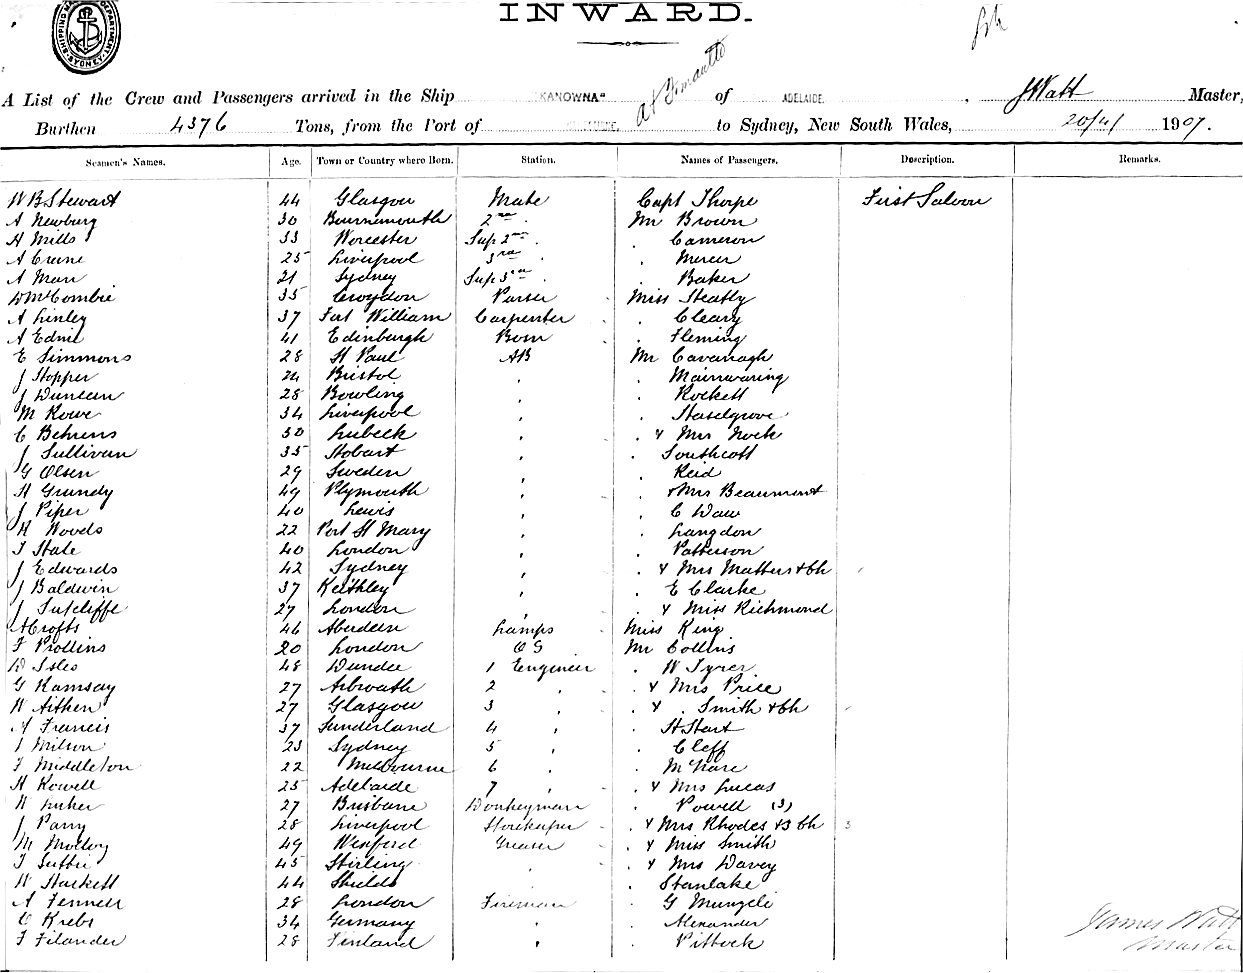 SHIPPING MASTER'S DEPARTMENT SYDNEY
INWARD.
A List of the Crew and Passengers arrived in the Ship "KANOWNA" of ADELAIDE, J Watt Master,
Burthen 4376 Tons, from the Port of to Sydney, New South Wales, 20/4/ 1907.
Seamen's Names. Age. Town or Country where Born. Station. Names of Passengers. Description. Remarks.
W B Stewart 44 Glasgow Mate Capt Thorpe First Saloon
A Newburg 30 Bournemouth 2nd Mr Brown
H Mills 33 Worcester Sup 2nd " Cameron
A Creine 25 Liverpool 3rd " Mercer
A Man 21 Sydney Sup 3rd " Baker
D McCombie 35 Croydon Purser Miss Heatly
A Linley 37 Fort William Carpenter " Cleary
A Edmi 41 Edinburgh Bosn " Fleming
E Simmons 28 St Paul AB Mr Cavanagh
J Hopper 24 Bristol " " Mainwaring
J Duncan 28 Bowling " " Rockett
M Rowe 34 Liverpool " " Haselgrove
C Behrens 30 Lubeck " " & Mrs Nock
J Sullivan 35 Hobart " " Southcott
G Olsen 29 Sweden " " Reid
H Grundy 49 Plymouth " " & Mrs Beaumont
J Piper 40 Lewis " " C Waw
K Woods 22 Port St Mary " " Langdon
T Hale 40 London " " Patterson
J Edwards 42 Sydney " " & Mrs Matters & ch
J Baldwin 37 Keithley " " E Clarke
J Sutcliffe 27 London " " & Miss Richmond
A Crofts 46 Aberdeen Lamps Miss King
F Prollins 20 London OS Mr Collins
D Isles 48 Dundee 1 Engineer " W Tyrer
G Ramsay 27 Arbroath 2 " " & Mrs Price
W Aitken 27 Glasgow 3 " " & " Smith & ch
A Francis 37 Sunderland 4 " " H Hart
J Milson 23 Sydney 5 " " Cleff
F Middleton 22 Melbourne 6 " " McNare
H Rowell 25 Adelaide 7 " " & Mrs Lucas
W Luker 27 Brisbane Donkeyman " Powell (3)
J Parry 28 Liverpool Storekeeper " & Mrs Rhodes & 3 ch 3
M Molloy 49 Wexford Greaser " & Miss Smith
T Suttie 45 Stirling " " & Mrs Davey
W Hackett 44 Shields " " Stanlake
A Fennell 28 London Fireman " G Mungeli
C Krebs 34 Germany " " Alexander
F Filander 28 Finland " " Pittock
James Watt
Master